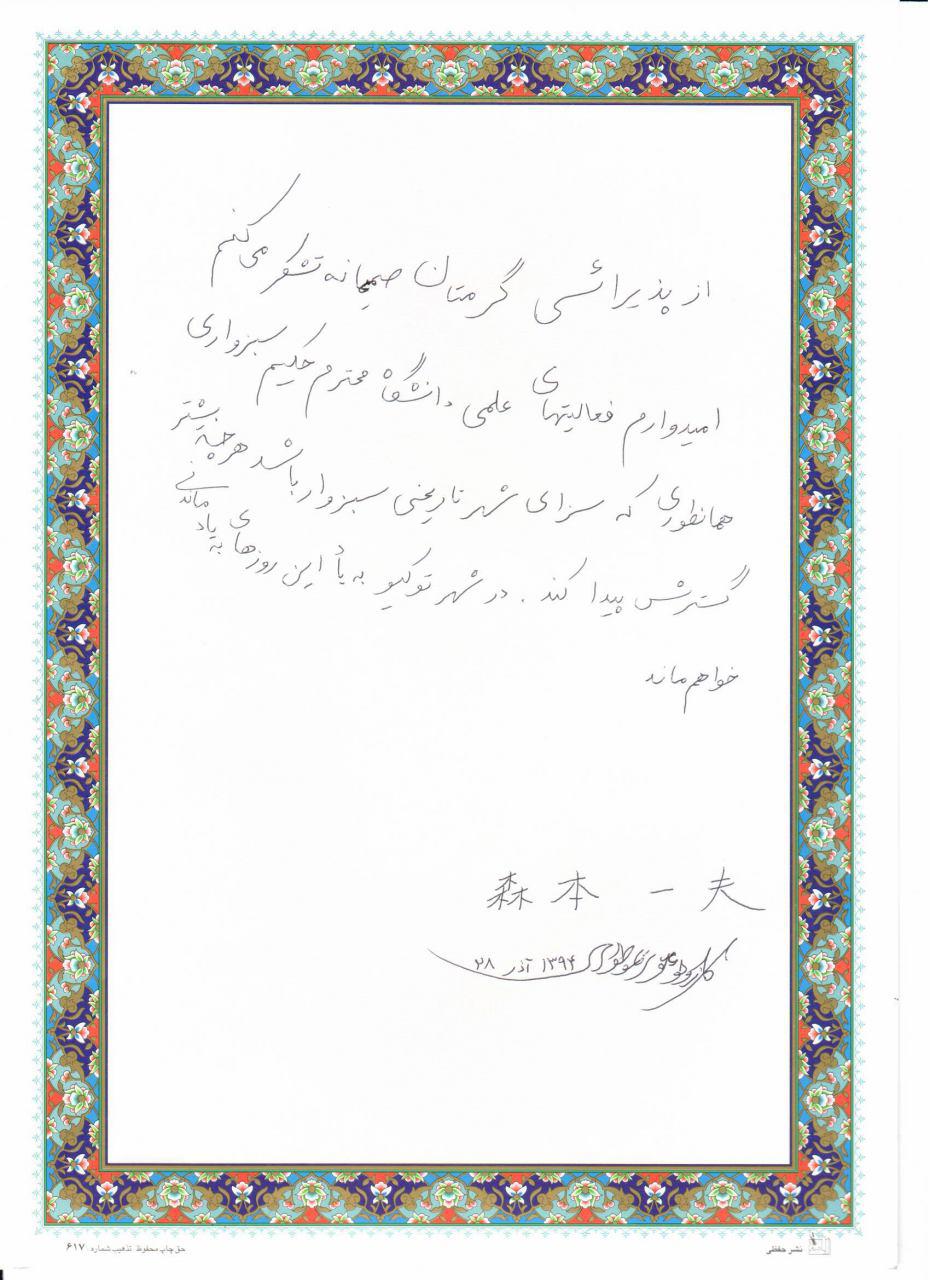 از پذیرائی گرمتان صمیمانه تشکر می‌کنم
امیدوارم فعالیتهای علمی دانشگاه محترم حکیم سبزواری
همانطوری که سزای شهر تاریخی سبزوار باشد هر چه بیشتر
گسترش پیدا کند. در شهر توکیو به یاد این روزهای به یاد ماندنی
خواهم ماند
森本 一夫
۲۸ آذر ۱۳۹۴
نشر حفظی
حق چاپ محفوظ تذهیب شماره ۶۱۷